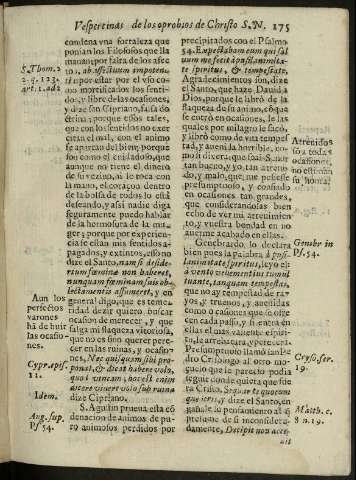 Vespertinas de los oprobios de Christo S.N. 175
condena vna fortaleza que
ponian los Filosofos que lla
mauan por falta de los afec
tos, ab affectuum impoten-
por estar por el vso co
mo mortificados los senti-
do, y libre de las ocasiones,
y dize san Cypriano, falsa do
ctrina; porque essos tales,
que con los sentidos no exer
citan el mal, con el animo
se apartan del bien; porque
son como el cuidadoso, que
aunque no tiene el dinero
de su vezino, ni le toca con
la mano, el coraçon dentro
de la bolsa de todos lo está
desseando, y assi nadie diga
seguramente puedo hablar
de la hermosura de la mu-
ger; porque por experien-
cia se están mis sentidos a-
pagados, y extintos, esso no
dize el Santo, nam si deside-
rium fœminæ non haberet,
nunquam fœminam suis ob-
lectamentis assumeret, y en
general digo, que es teme-
ridad dezir quiero buscar
ocasion de merecer, y que
salga mi flaqueza vitoriosa,
que no es sino querer pere-
cer en las ruinas, y ocasio-
nes, Nec quisquam sibi pro-
ponat, & dicat habere volo,
quod vincam, hoc est enim
dicere vivere volo sub ruina
dize Cipriano.
S. Agustin prueua esta cõ
denacion de animos de pu-
ro animosos perdidos por
S. Thom. 2
2. q. 123.
art. 1. ad 2
Aun los
perfectos
varones
hã de huir
las ocasio-
nes.
Cypr. epist.
11.
Idem.
Aug. sup.
Ps 54.
precipitados con el Psalmo
54. Expectabam eum qui sal
uum me fecit à pusilanimita-
te spiritus, & tempestate.
Agradezimiento son, dize
el Santo, que haze Dauid a
Dios, porque le librò de la
flaqueza de su animo, cõ que
se entrò en ocasiones, de las
quales por milagro le sacò,
y librò como de vna tempes
tad, y auenida horrible, co-
mo si dixera: que soi a Señor
tan bueno, y yo tan atreui-
do, y malo, que, me pesasse
presumptuoso, y confiado
en ocasiones tan grandes,
que considerandolas bien
echo de ver mi atreuimien
to, y vuestra bondad en no
auerme acabado en ellas.
Genebrardo lo declara
bien pues la palabra à pusi-
lanimitate spiritus, leyò el
à vento vehementius tumul
tuante, tanquam tempestas,
que no ay tempestad de ra-
yos, y truenos, y auenidas
como las ocasiones que se ofre
cen cada passo, y si entra en
ellas el mas valiente espiri-
tu, le arrebata, y precipita.
Presumptuoso llamò san Pe-
dro Crisologo al otro mo-
ço, que le parecio podia
seguir donde quiera que fue
ra Cristo, Sequar te quocum
que ieris, y dize el Santo, en
gañale su pensamiento al q̃
presume de si inconsiderada-
mente, Decipit non acce-
dit
Atreuidos
sõ a todas
ocasiones,
no estimãn
su honra.
Genebr in
Ps. 54.
Cryso. ser.
19.
Matth. c.
8 n. 19.